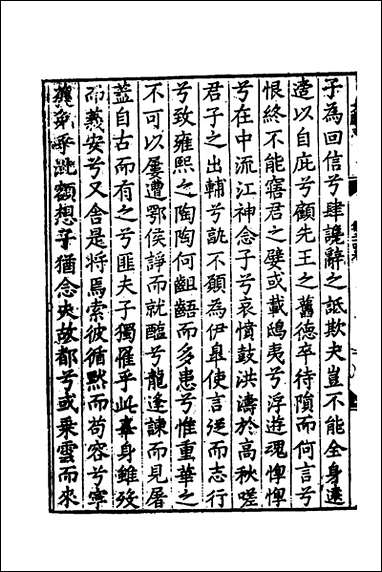 子為回信兮肆讒辭之詆欺夫豈不能全身遠
以自庇兮顧先王之舊德卒待隕而何言兮
恨終不能君之嬖或載鴟夷兮浮遊魂
兮在中流江神念子兮哀憤鼓洪濤於高秋嗟
君子之出輔兮不願為伊臯使言而志行
兮致雍熙之陶陶何齟齬而多患兮惟重華之
不可以屢遭鄂侯諍而就醢兮龍逄諫而見屠
蓋自古而有之兮匪夫子獨罹乎此辜身雖歿
而義安兮又舍是將焉索彼循默而苟容兮寧
乎此額想子猶念夫故都兮或乗雲而來